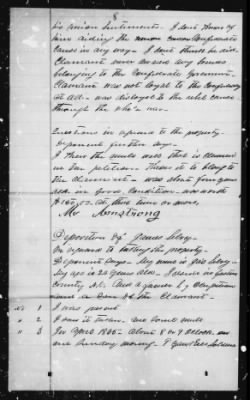 his union sentiments. I don't know of
him aiding the Confederate
cause in any way. I don't think he did.
Claimant never owned any bonds
belonging to the Confederate Government.
Claimant was not loyal to the Confederacy
at all. was disloyal to the rebel cause
through the whole war.
Questions in regard to the property.
deponent further says.
I knew the mule well that is claimed
in the petition. Knew it to belong to
the claimant. was about four years
old. in good condition. was worth
at that time or more.
Armstrong
Deposition of James
In regard to taking the property.
Deponent says. My name is
My age is 24 years old. I reside in Gaston
County N.C. And a farmer by occupation
and a son of the Claimant.
No 1 I was present
" 2 I saw it taken. one mule
" 3 In April 1865. About 8 or 9 o'clock. on
one Sunday morning.